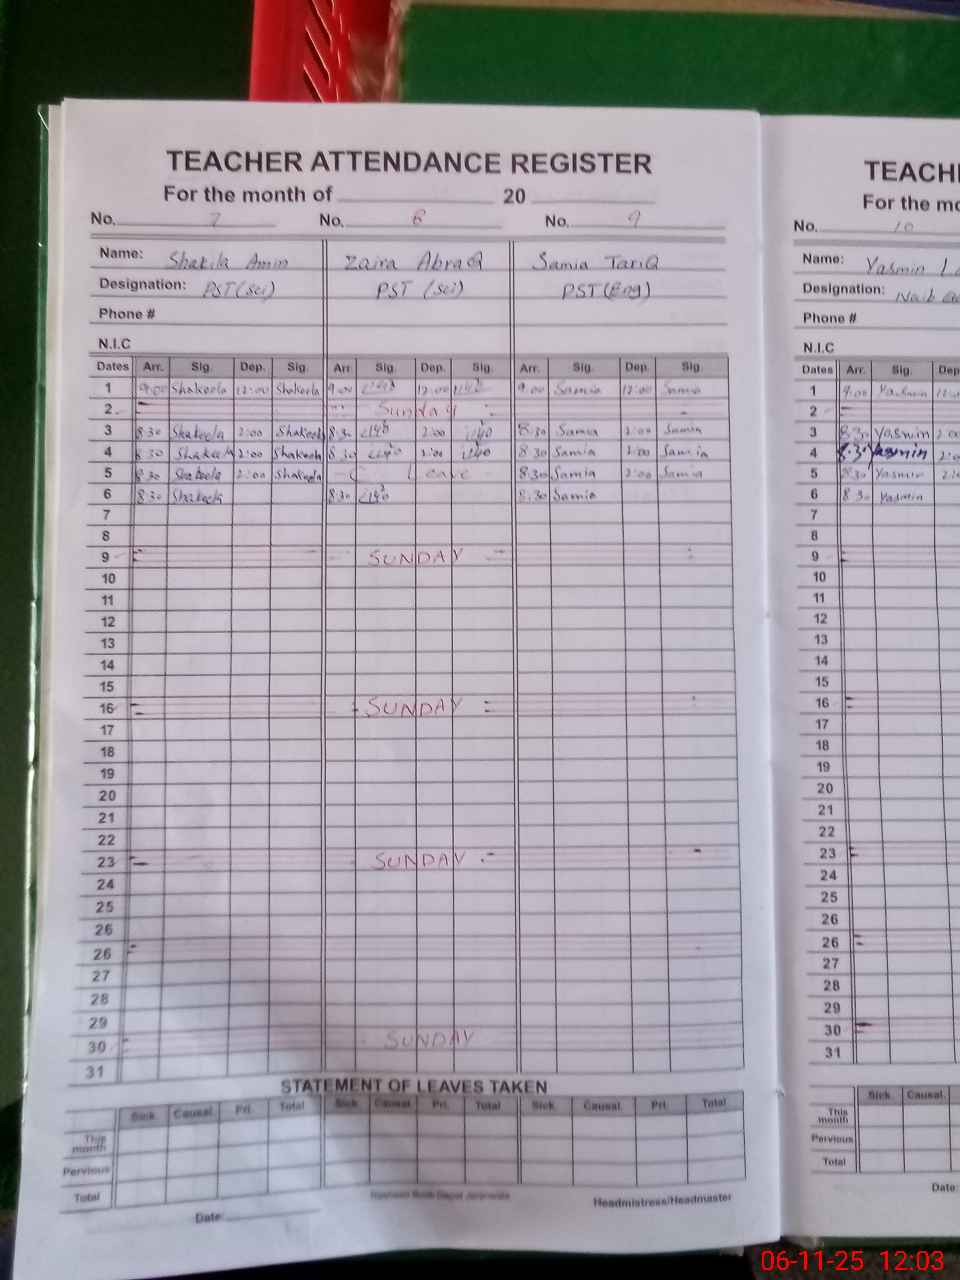 TEACHER ATTENDANCE REGISTER
For the month of 20
No. 7 No. 8 No. 9
Name: Shakila Amin Zaira AbraQ Samia TariQ
Designation: PST(sci) PST (sci) PST(Eng)
Phone #
N.I.C
Dates Arr. Sig. Dep. Sig. Arr Sig. Dep. Sig. Arr. Sig. Dep. Sig.
1 9:00 Shakeela 12:00 Shakeela 9:00 12:00 9:00 Samia 12:00 Samia
2 Sunday
3 8:30 Shakeela 2:00 Shakeela 8:30 2:00 8:30 Samia 2:00 Samia
4 8:30 Shakeela 2:00 Shakeela 8:30 2:00 8:30 Samia 2:00 Samia
5 8:30 Shakeela 2:00 Shakeela C Leave 8:30 Samia 2:00 Samia
6 8:30 Shakeela 8:30 8:30 Samia
7
8
9 SUNDAY
10
11
12
13
14
15
16 SUNDAY
17
18
19
20
21
22
23 SUNDAY
24
25
26
26
27
28
29
30 SUNDAY
31
STATEMENT OF LEAVES TAKEN
Sick. Causal. Pri. Total Sick. Causal. Pri. Total Sick. Causal. Pri. Total
This month
Pervious
Total
Headmistress/Headmaster
Date:
TEACH
For the mo
No. 10
Name: Yasmin
Designation: Naib
Phone #
N.I.C
Dates Arr. Sig. Dep
1 9:00 Yasmin
2
3 8:30 Yasmin 2:00
4 8:30 Yasmin
5 8:30 Yasmin
6 8:30 Yasmin
7
8
9
10
11
12
13
14
15
16
17
18
19
20
21
22
23
24
25
26
26
27
28
29
30
31
Sick. Causal.
This month
Pervious
Total
Date:
06-11-25 12:03